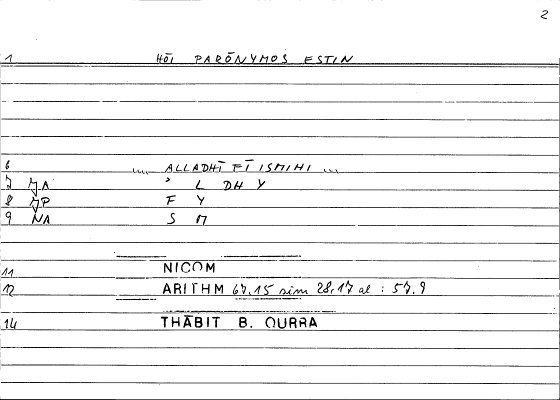 2
1 HŌI PARŌNYMOS ESTIN
6 .... ALLADHĪ FĪ ISMIHI ...
7 JA ' L DH Y
8 JP F Y
9 NA S M
11 NICOM
12 ARITHM 67,15 sim 28,17 al : 57.9
14 THĀBIT B. QURRA